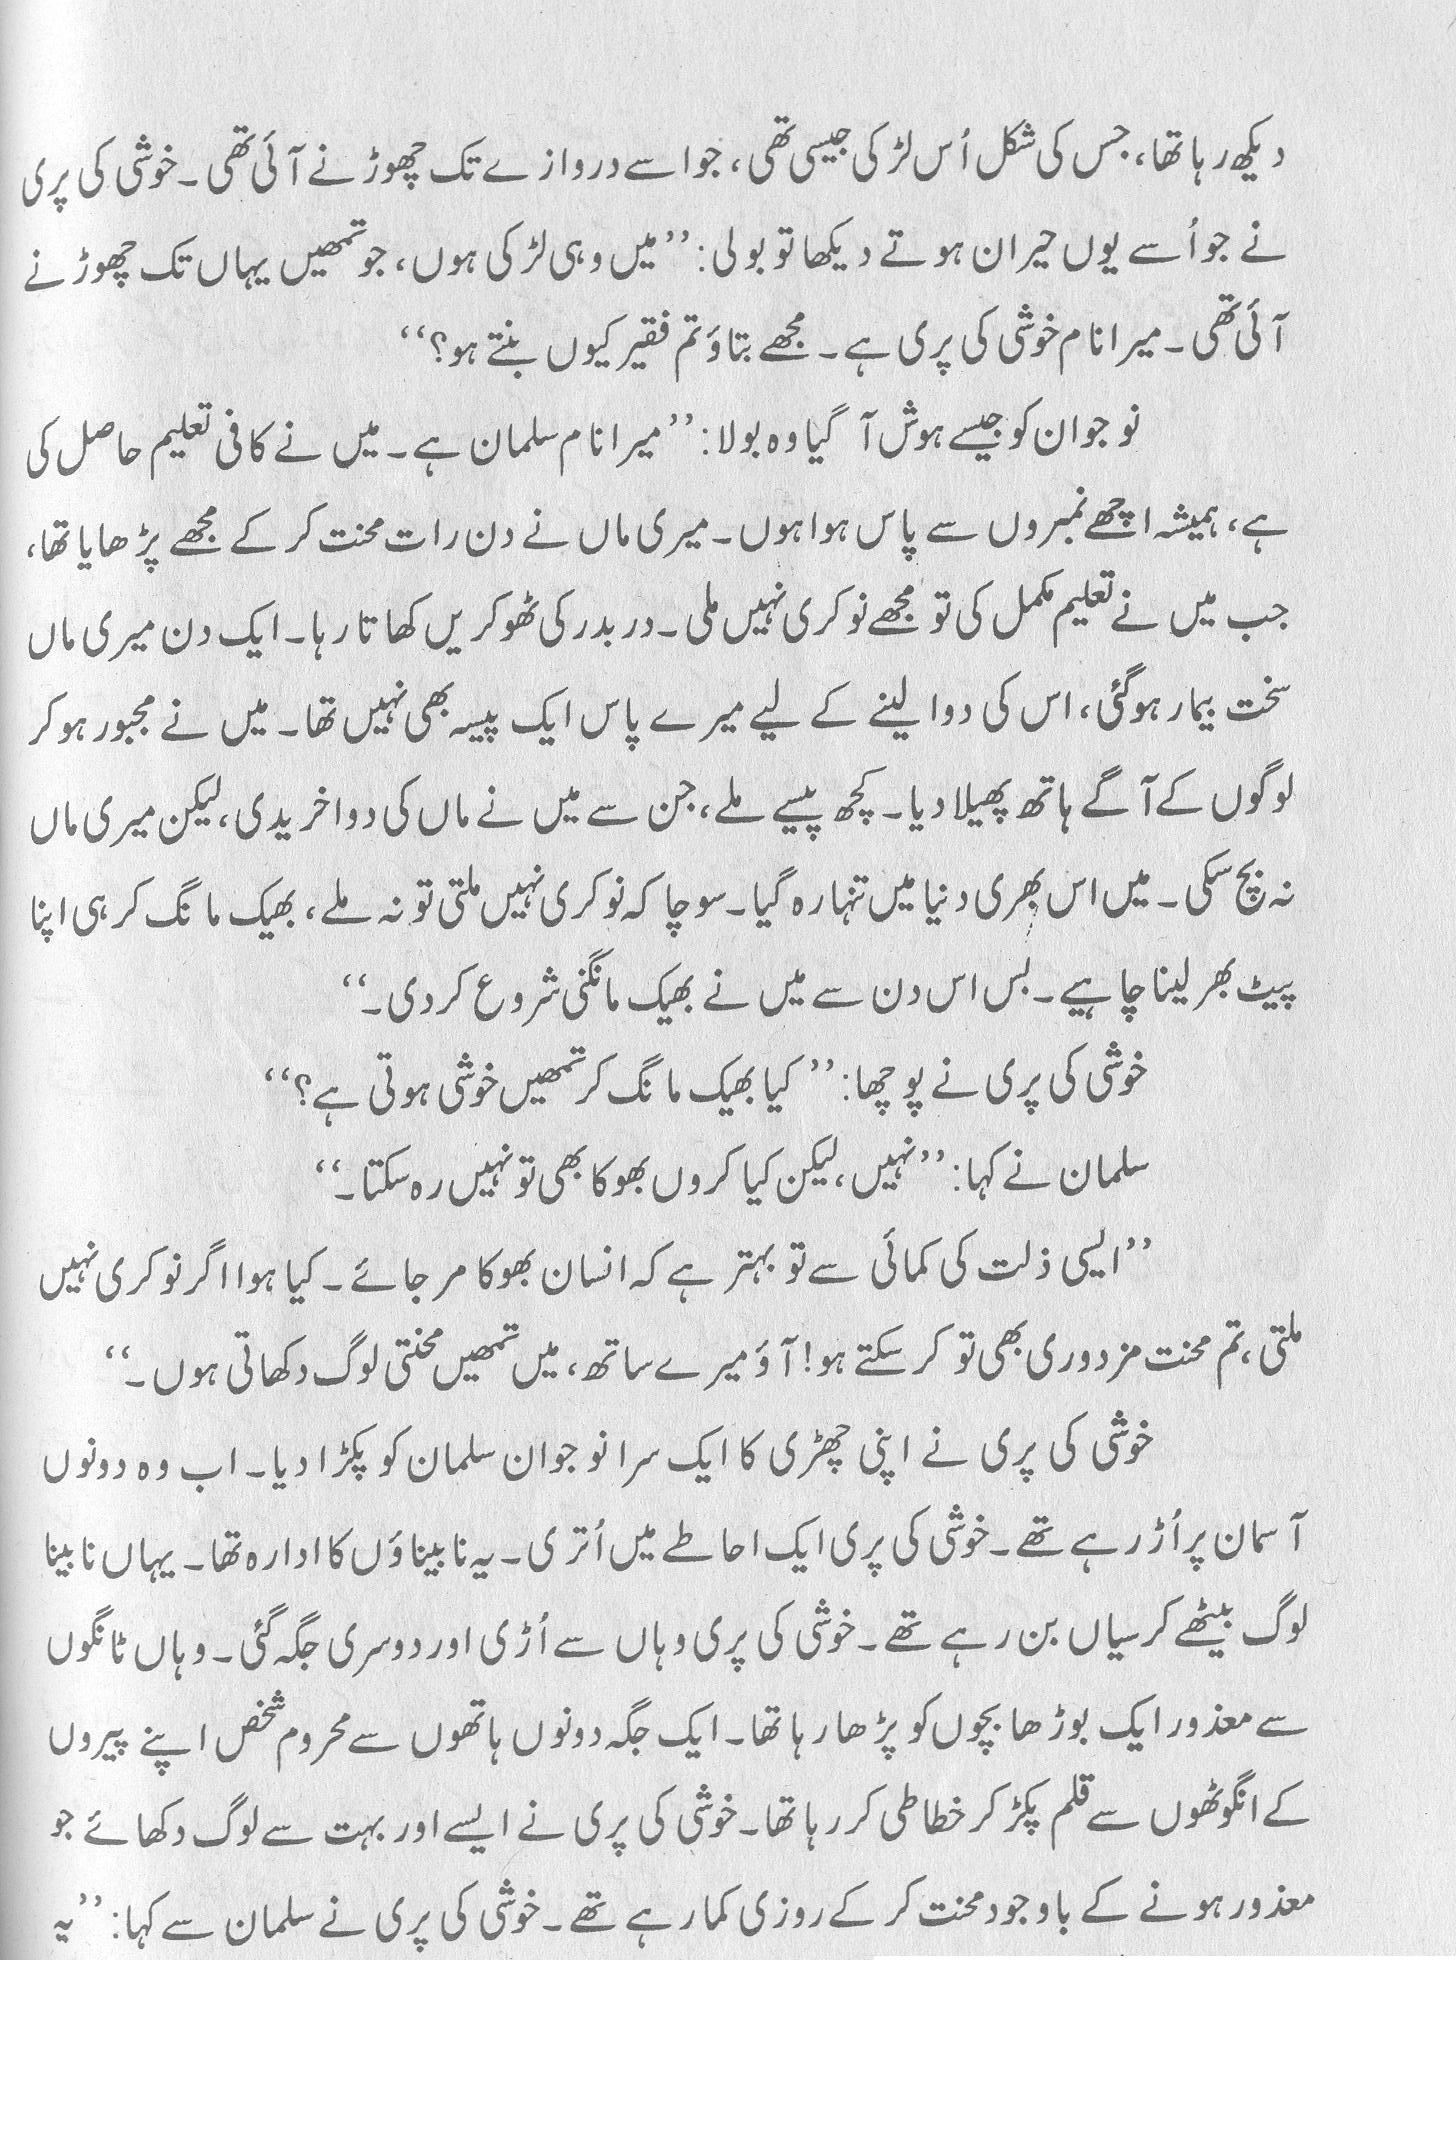 دیکھ رہا تھا، جس کی شکل اُس لڑکی جیسی تھی، جو اسے دروازے تک چھوڑنے آئی تھی۔ خوشی کی پری
نے جو اُسے یوں حیران ہوتے دیکھا تو بولی: ’’میں وہی لڑکی ہوں، جو تمھیں یہاں تک چھوڑنے
آئی تھی۔ میرا نام خوشی کی پری ہے۔ مجھے بتاؤ تم فقیر کیوں بنتے ہو؟‘‘
نوجوان کو جیسے ہوش آ گیا وہ بولا: ’’میرا نام سلمان ہے۔ میں نے کافی تعلیم حاصل کی
ہے، ہمیشہ اچھے نمبروں سے پاس ہوا ہوں۔ میری ماں نے دن رات محنت کر کے مجھے پڑھایا تھا،
جب میں نے تعلیم مکمل کی تو مجھے نوکری نہیں ملی۔ در بدر کی ٹھوکریں کھاتا رہا۔ ایک دن میری ماں
سخت بیمار ہوگئی، اس کی دوا لینے کے لیے میرے پاس ایک پیسہ بھی نہیں تھا۔ میں نے مجبور ہو کر
لوگوں کے آگے ہاتھ پھیلا دیا۔ کچھ پیسے ملے، جن سے میں نے ماں کی دوا خریدی، لیکن میری ماں
نہ بچ سکی۔ میں اس بھری دنیا میں تنہا رہ گیا۔ سوچا کہ نوکری نہیں ملتی تو نہ ملے، بھیک مانگ کر ہی اپنا
پیٹ بھر لینا چاہیے۔ بس اس دن سے میں نے بھیک مانگنی شروع کردی۔‘‘
خوشی کی پری نے پوچھا: ’’کیا بھیک مانگ کر تمھیں خوشی ہوتی ہے؟‘‘
سلمان نے کہا: ’’نہیں، لیکن کیا کروں بھوکا بھی تو نہیں رہ سکتا۔‘‘
’’ایسی ذلت کی کمائی سے تو بہتر ہے کہ انسان بھوکا مر جائے۔ کیا ہوا اگر نوکری نہیں
ملتی، تم محنت مزدوری بھی تو کر سکتے ہو! آؤ میرے ساتھ، میں تمھیں محنتی لوگ دکھاتی ہوں۔‘‘
خوشی کی پری نے اپنی چھڑی کا ایک سرا نوجوان سلمان کو پکڑا دیا۔ اب وہ دونوں
آسمان پر اُڑ رہے تھے۔ خوشی کی پری ایک احاطے میں اُتری۔ یہ نابیناؤں کا ادارہ تھا۔ یہاں نابینا
لوگ بیٹھے کرسیاں بن رہے تھے۔ خوشی کی پری وہاں سے اُڑی اور دوسری جگہ گئی۔ وہاں ٹانگوں
سے معذور ایک بوڑھا بچوں کو پڑھا رہا تھا۔ ایک جگہ دونوں ہاتھوں سے محروم شخص اپنے پیروں
کے انگوٹھوں سے قلم پکڑ کر خطاطی کر رہا تھا۔ خوشی کی پری نے ایسے اور بہت سے لوگ دکھائے جو
معذور ہونے کے باوجود محنت کر کے روزی کما رہے تھے۔ خوشی کی پری نے سلمان سے کہا: ’’یہ